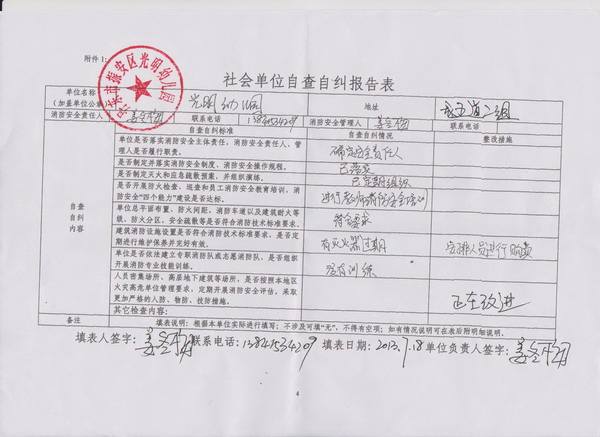 附件1:
丹东市振安区光明幼儿园
社会单位自查自纠报告表
单位名称 光明幼儿园 地址
(加盖单位公章)
消防安全责任人 联系电话 13841534209 消防安全管理人 联系电话
自查自纠标准 自查自纠情况 整改措施
自查自纠内容
单位是否落实消防安全主体责任,消防安全责任人、管理人是否履行职责。 确定安全责任人
是否制定并落实消防安全制度、消防安全操作规程。 已落实
是否制定灭火和应急疏散预案,并组织演练。 已定期组织
是否开展防火检查、巡查和员工消防安全教育培训,消防安全“四个能力”建设是否达标。
单位总平面布置、防火间距、消防车道以及建筑耐火等级、防火分区、安全疏散等是否符合消防技术标准要求。 符合要求
建筑消防设施设置是否符合消防技术标准要求、是否定期进行维护保养并完好有效。 有灭火器过期 安排人员进行购买
单位是否依法建立专职消防队或志愿消防队,是否组织开展消防专业技能训练。 没有训练
人员密集场所、高层地下建筑等场所,是否按照本地区火灾高危单位管理要求,定期开展消防安全评估,采取更加严格的人防、物防、技防措施。 正在改进
其它检查内容:
备注 填表说明:根据本单位实际进行填写;不涉及可填“无”,不得有空项;如有情况说明可在表后附明细说明。
填表人签字: 联系电话:13841534209 填表日期:2013.7.18 单位负责人签字:
4